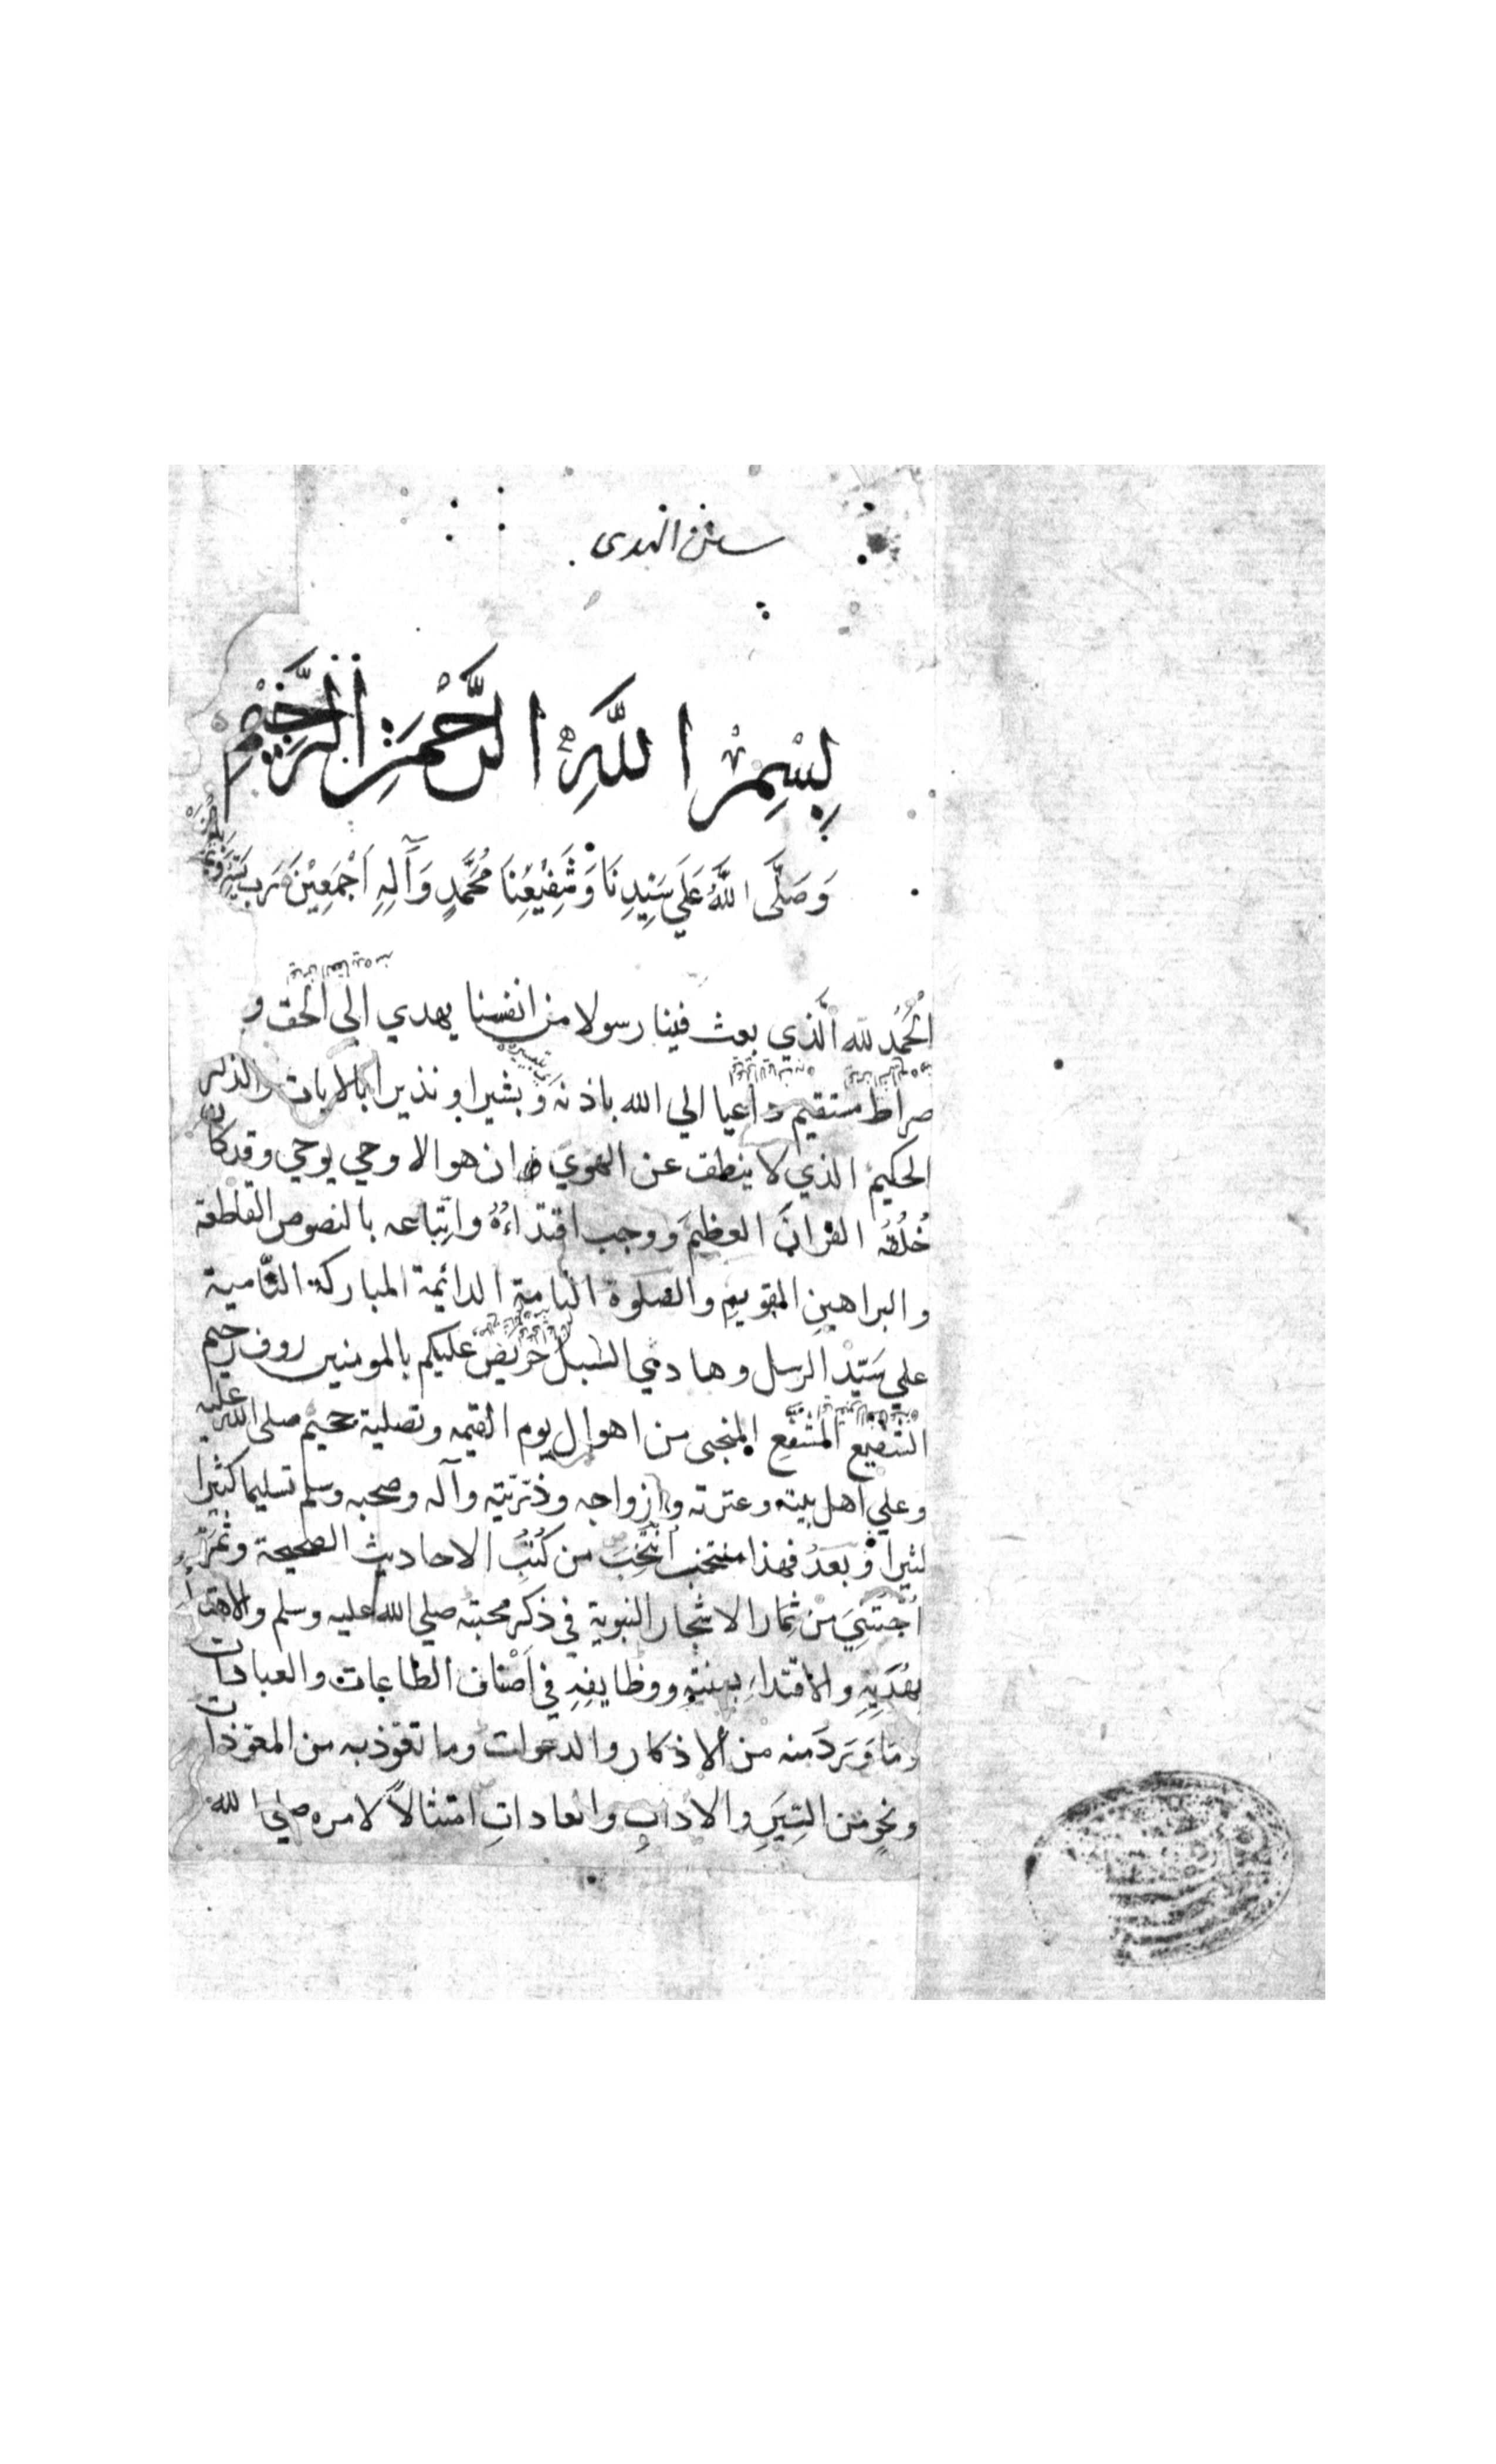 سنن الهدى
بِسْمِ اللَّهِ الرَّحْمَنِ الرَّحِيْمِ
وَصَلَّى اللَّهُ عَلَي سَيِّدِنَا وَشَفِيْعِنَا مُحَمَّدٍ وَآلِهِ اَجْمَعِيْنَ رب يسر
الحَمْدُ لله الَّذي بعث فينا رسولا من انفسنا يهدي الي الحق و
صراط مستقيم داعيا الي الله باذنه وَبشيرا و نذيرا بالايات والذكر
الحكيم الذي لا ينطق عن الهوي ان هو الا وحي يوحي وقد كان
خُلُقُه القرانَ العظيمَ ووجب اقتداءُهُ واتِّباعه بالنصوص القاطعة
و البراهينِ المقويم والصلوة التامة الدائمة المباركة النَّامية
علي سَيّد الرسل وهادي السبل حريص عليكم بالمومنين روف رحيم
الشفيع المُشفّع المنجى من اهوال يوم القيمه وتصلية صلى الله عليه
وعلي اهل بيته وعترته وازواجه وذرّيّته وآله وصحبه وسلم تسليما كثيرا
كثيرا وبَعدُ فهذا منتخب اُنتُخِبَ من كُتُبِ الاحاديث الصحيحة وثمرٌ
اُجْتُنِيَ مِنْ ثِمار الاشجار النبوية في ذكر محبته صلي الله عليه وسلم والاهتداء
بهَديِهِ والاقتداءِ بسنتِهِ ووظايفِهِ في اَصْناف الطاعات والعبادات
وما وَرَدَ منه من الاذكار والدعوات وما تعوّذ به من المعوّذات
ونحوٍ من السِيَرِ والادابِ والعاداتِ امتثالاً لامره صلي الله